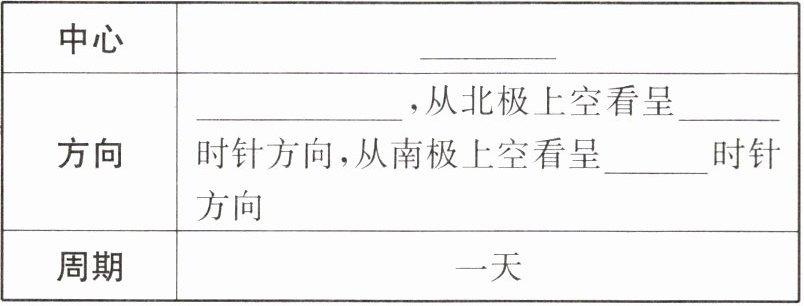 中心 ________
____________,从北极上空看呈______
方向 时针方向,从南极上空看呈______时针
方向
周期 一天